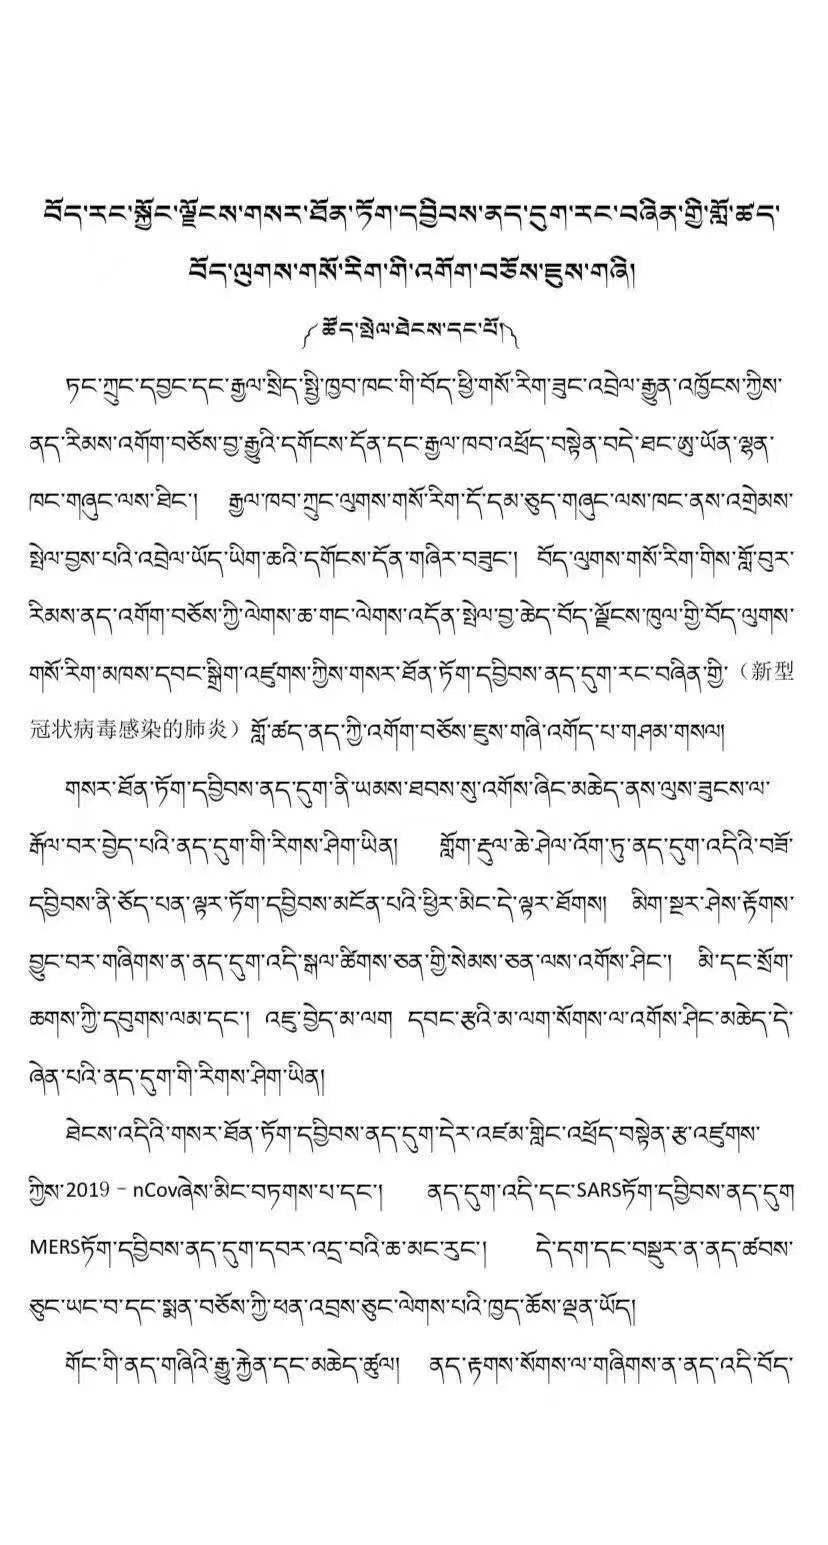 བོད་རང་སྐྱོང་ལྗོངས་གསར་ཐོན་ཏོག་དབྱིབས་ནད་དུག་རང་བཞིན་གྱི་གློ་ཚད་
བོད་ལུགས་གསོ་རིག་གི་འགོག་བཅོས་ཇུས་གཞི།
༼ཚོད་སྤེལ་ཐེངས་དང་པོ།༽
ཏང་ཀྲུང་དབྱང་དང་རྒྱལ་སྲིད་སྤྱི་ཁྱབ་ཁང་གི་བོད་ཕྱི་གསོ་རིག་ཟུང་འབྲེལ་རྒྱུན་འཁྱོངས་ཀྱིས་
ནད་རིམས་འགོག་བཅོས་བྱ་རྒྱུའི་དགོངས་དོན་དང་རྒྱལ་ཁབ་འཕྲོད་བསྟེན་བདེ་ཐང་ཨུ་ཡོན་ལྷན་
ཁང་གཞུང་ལས་ཐིང་། རྒྱལ་ཁབ་ཀྲུང་ལུགས་གསོ་རིག་དོ་དམ་ཅུད་གཞུང་ལས་ཁང་ནས་འགྲེམས་
སྤེལ་བྱས་པའི་འབྲེལ་ཡོད་ཡིག་ཆའི་དགོངས་དོན་གཞིར་བཟུང་། བོད་ལུགས་གསོ་རིག་གིས་གློ་བུར་
རིམས་ནད་འགོག་བཅོས་ཀྱི་ལེགས་ཆ་གང་ལེགས་འདོན་སྤེལ་བྱ་ཆེད་བོད་ལྗོངས་ཁུལ་གྱི་བོད་ལུགས་
གསོ་རིག་མཁས་དབང་སྒྲིག་འཛུགས་ཀྱིས་གསར་ཐོན་ཏོག་དབྱིབས་ནད་དུག་རང་བཞིན་གྱི་（新型
冠状病毒感染的肺炎）གློ་ཚད་ནད་ཀྱི་འགོག་བཅོས་ཇུས་གཞི་འགོད་པ་གཤམ་གསལ།
གསར་ཐོན་ཏོག་དབྱིབས་ནད་དུག་ནི་ཡམས་ཐབས་སུ་འགོས་ཞིང་མཆེད་ནས་ལུས་ཟུངས་ལ་
རྒོལ་བར་བྱེད་པའི་ནད་དུག་གི་རིགས་ཤིག་ཡིན། གློག་རྡུལ་ཆེ་ཤེལ་འོག་ཏུ་ནད་དུག་འདིའི་བཟོ་
དབྱིབས་ནི་ཅོད་པན་ལྟར་ཏོག་དབྱིབས་མངོན་པའི་ཕྱིར་མིང་དེ་ལྟར་ཐོགས། མིག་སྔར་ཤེས་རྟོགས་
བྱུང་བར་གཞིགས་ན་ནད་དུག་འདི་སྒལ་ཚིགས་ཅན་གྱི་སེམས་ཅན་ལས་འགོས་ཤིང་། མི་དང་སྲོག་
ཆགས་ཀྱི་དབུགས་ལམ་དང་། འཇུ་བྱེད་མ་ལག དབང་རྩའི་མ་ལག་སོགས་ལ་འགོས་ཤིང་མཆེད་དེ་
ཞེན་པའི་ནད་དུག་གི་རིགས་ཤིག་ཡིན།
ཐེངས་འདིའི་གསར་ཐོན་ཏོག་དབྱིབས་ནད་དུག་དེར་འཛམ་གླིང་འཕྲོད་བསྟེན་རྩ་འཛུགས་
ཀྱིས་2019–nCovཞེས་མིང་བཏགས་པ་དང་། ནད་དུག་འདི་དང་SARSཏོག་དབྱིབས་ནད་དུག
MERSཏོག་དབྱིབས་ནད་དུག་དབར་འདྲ་བའི་ཆ་མང་རུང་། དེ་དག་དང་བསྡུར་ན་ནད་ཚབས་
ཅུང་ཡང་བ་དང་སྨན་བཅོས་ཀྱི་ཕན་འབྲས་ཅུང་ལེགས་པའི་ཁྱད་ཆོས་ལྡན་ཡོད།
གོང་གི་ནད་གཞིའི་རྒྱུ་རྐྱེན་དང་མཆེད་ཚུལ། ནད་རྟགས་སོགས་ལ་གཞིགས་ན་ནད་འདི་བོད་